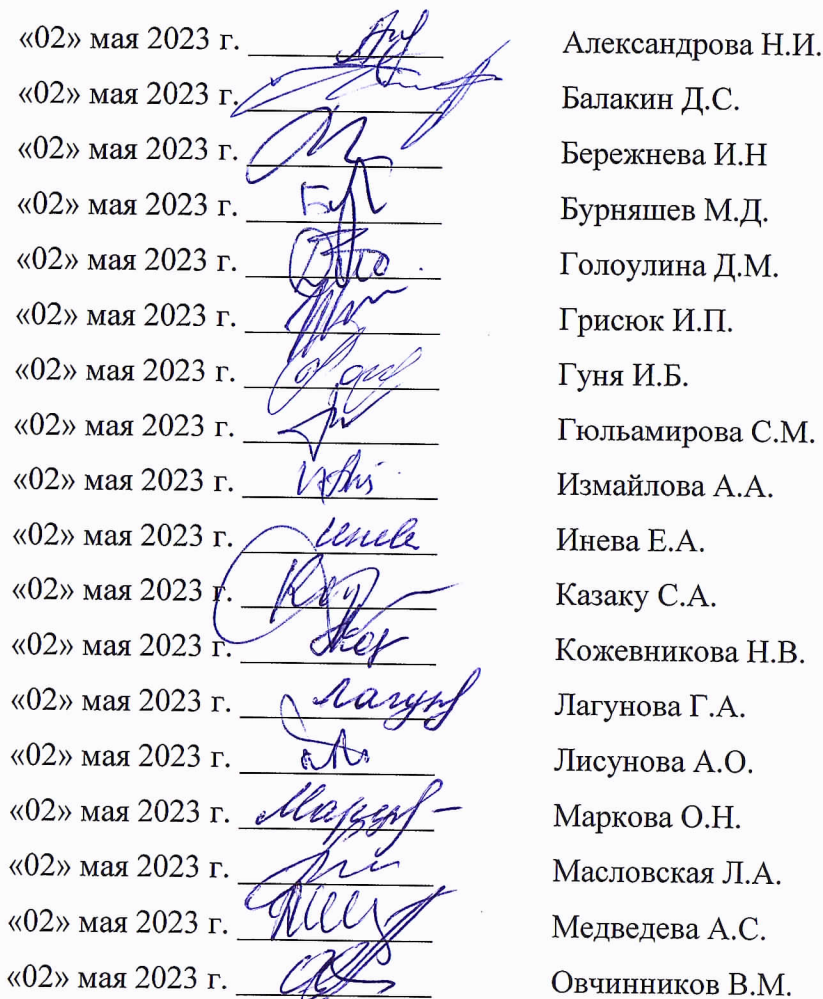 «02» мая 2023 г. Александрова Н.И.
«02» мая 2023 г. Балакин Д.С.
«02» мая 2023 г. Бережнева И.Н
«02» мая 2023 г. Бурняшев М.Д.
«02» мая 2023 г. Голоулина Д.М.
«02» мая 2023 г. Грисюк И.П.
«02» мая 2023 г. Гуня И.Б.
«02» мая 2023 г. Гюльамирова С.М.
«02» мая 2023 г. Измайлова А.А.
«02» мая 2023 г. Инева Е.А.
«02» мая 2023 г. Казаку С.А.
«02» мая 2023 г. Кожевникова Н.В.
«02» мая 2023 г. Лагунова Г.А.
«02» мая 2023 г. Лисунова А.О.
«02» мая 2023 г. Маркова О.Н.
«02» мая 2023 г. Масловская Л.А.
«02» мая 2023 г. Медведева А.С.
«02» мая 2023 г. Овчинников В.М.